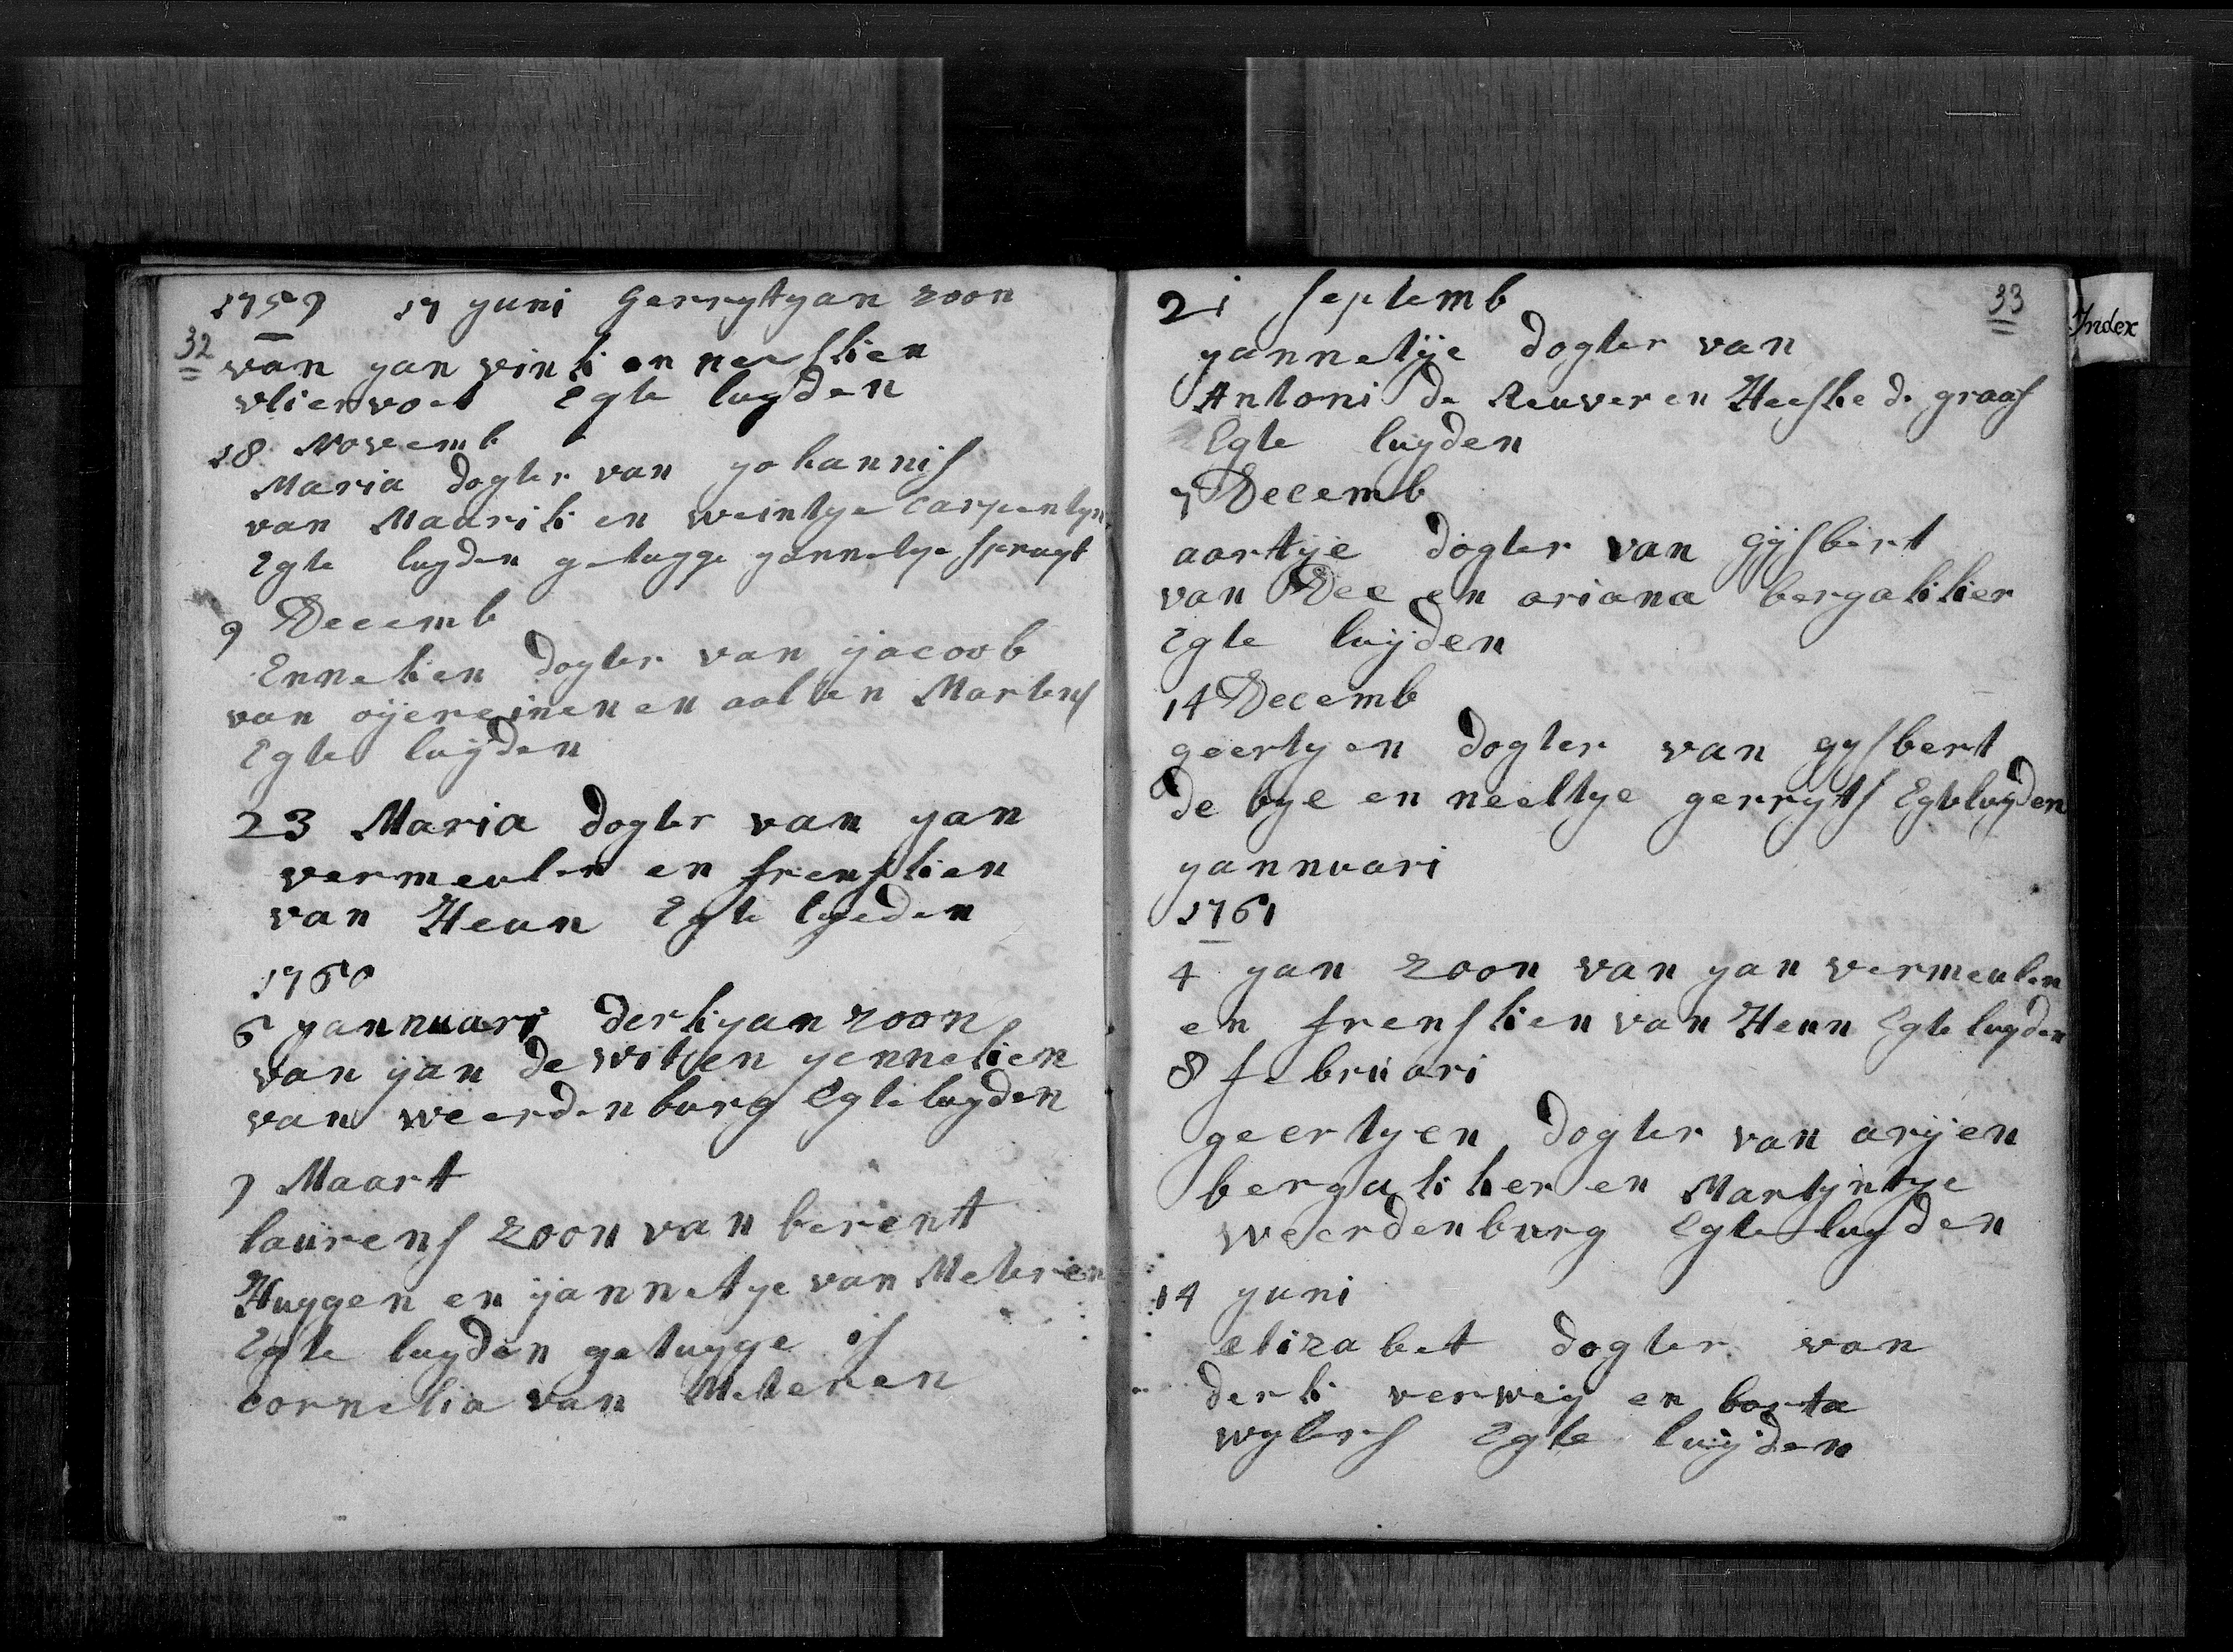 1759 17 yuni Gerrytyan zoon
32
van yan vink en neeskien
vliervoet Egte luyden
18 Noveemb
Maria dogter van yohannis
van Maurik en weintye carpentyn
Egte luyden getugge yannetye spruyt
9 Decemb
Enneken dogter van yacoob
van oyereinen en aalken Martens
Egte luyden
23 Maria dogter van yan
vermeulen en frenskien
van Heun Egte lyeden
1760
6 yannuari derkyan zoon
van yan de wit en yenneken
van weerdenburg Egte luyden
7 Maart
laurens zoon van berent
Huggen en yannetye van Meteren
Egte luyden getugge is
cornelia van Meteren
33
Index
21 septemb
yannetye dogter van
Antoni de Reuver en Heeske de graaf
Egte luyden
7 Decemb
aartye dogter van gysbert
van Dee en ariana bergakker
Egte luyden
14 Decemb
geertyen dogter van gysbert
de bye en neeltye gerryts Egte luyden
yannuari
1761
4 yan zoon van yan vermeulen
en frenskien van Heun Egte luyden
8 februari
geertyen dogter van aryen
bergakker en Martyntye
weerdenburg Egte luyden
14 yuni
elizabet dogter van
derk verwey en barta
wylers Egte luyden